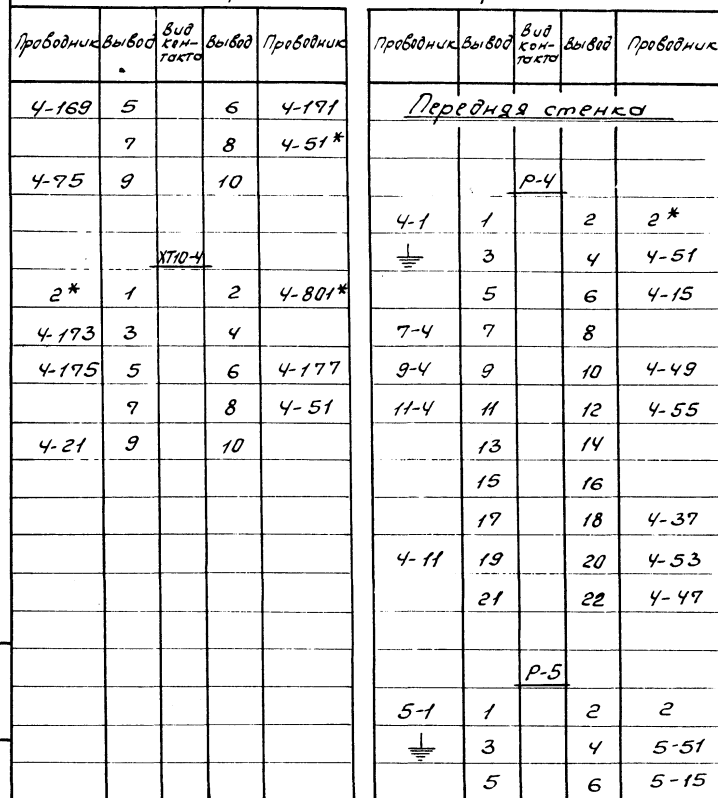 Проводник Вывод Вид кон- такта Вывод Проводник
4-169 5 6 4-171
7 8 4-51*
4-75 9 10
ХТ10-4
2* 1 2 4-801*
4-173 3 4
4-175 5 6 4-177
7 8 4-51
4-21 9 10
Проводник Вывод Вид кон- такта Вывод Проводник
Передняя стенка
Р-4
4-1 1 2 2*
⏚ 3 4 4-51
5 6 4-15
7-4 7 8
9-4 9 10 4-49
11-4 11 12 4-55
13 14
15 16
17 18 4-37
4-11 19 20 4-53
21 22 4-47
Р-5
5-1 1 2 2
⏚ 3 4 5-51
5 6 5-15